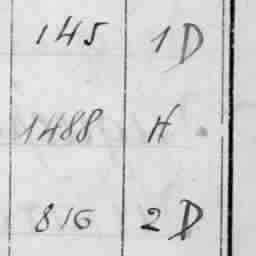 145 1D
1488 H
816 2D